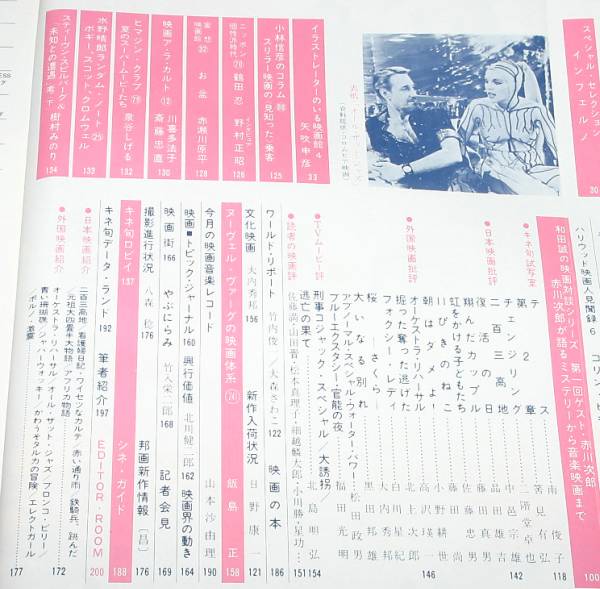 スペシャル・セレクション
インフェルノ
30
表紙 オール・ザット・ジャズ
〈資料提供・コロムビア映画〉
イラストレーターのいる映画館 4
矢吹申彦
33
小林信彦のコラム
スリラー映画の〈見知った〉乗客
125
ニッポン個性派時代
鶴田忍
インタビュア
野村正昭
126
妄想映画館 32
お盆
赤瀬川原平
128
映画ア・ラ・カルト 12
川喜多法子
斎藤忠直
130
ヒマジン・クラブ 79
夏のスーパームービーたち
泉谷しげる
132
水野晴郎ランダム・ノート 25
ボギー、スコット、クロムウェル
133
スティーヴン・スピルバーグ&
「未知との遭遇」考・下
樹村みのり
134
ハリウッド映画人見聞録 6
100
和田誠の映画対談シリーズ 第一回ゲスト・赤川次郎
赤川次郎が語るミステリーから音楽映画まで
118
●キネ旬試写室
第2章
南俊子
テス
筈見有弘
チェンジリング
二階堂卓也
142
●日本映画批評
二百三高地
中邑宗雄
復活の日
品田雄吉
翔んだカップル
藤田真男
虹をかける子どもたち
佐藤忠男
●外国映画批評
川はダメよ
高沢瑛一
オーケストラ・リハーサル
北上次郎
掘った奪った逃げた
白川星紀
フォクシー・レディ
大内秀邦
桜 さくら
黒田邦雄
大いなる別れ
松田政男
アブノーマル・スペシャル・ウォーター・パワー
ブルーエクスタシー・官能の夜
福田光明
146
●TVムービー評
刑事コジャック・スペシャル/大誘拐
北島明弘
154
逃亡の果て
●読者の映画評
佐藤満・山田晋・松本真理・細越麟太郎・小川勝・星功…
151
ワールド・リポート
竹内俊一/大森さわこ
122
映画の本
186
文化映画
大内秀邦
156
新作入荷状況
日野康一
121
ヌーヴェル・ヴァーグの映画体系
飯島正
158
今月の映画音楽レコード
山本沙由理
190
映画■トピック・ジャーナル
160
興行価値
北川健二郎
162
映画界の動き
164
映画街
166
やぶにらみ
竹入栄二郎
168
記者会見
169
撮影進行状況
八森稔
176
邦画新作情報〔昌〕
176
キネ旬ロビイ
137
シネ・ガイド
188
キネ旬データ・ランド
192
筆者紹介
197
EDITOR・ROOM
200
●日本映画紹介
二百三高地 看護婦日記・ワイセツなカルテ/赤い通り雨 鉄騎兵、跳んだ
/元祖大四畳半大物語/アフリカ物語
172
●外国映画紹介
オーケストラ・リハーサル/オール・ザット・ジャズ/ブロンコ・ビリー/
青い珊瑚礁/ジャバーウォッキー/かわうそタルカの冒険/エレクトガール
/ポルノ・激震
177